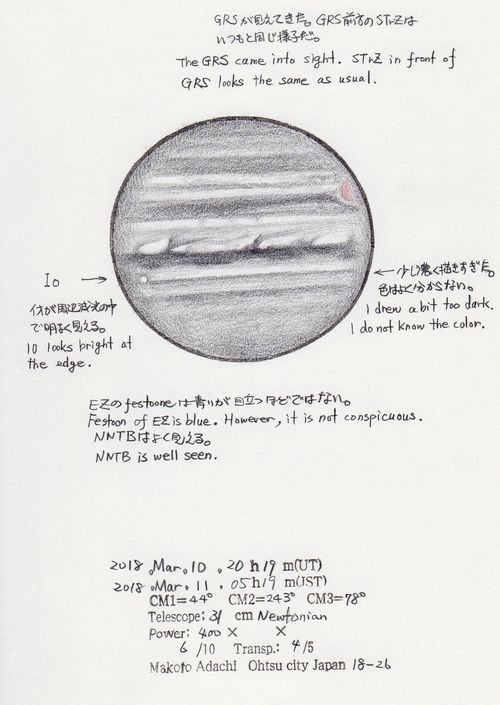 GRSが見えてきた。GRS前方のSTrZは
いつもと同じ様子だ。
The GRS came into sight. STrZ in front of
GRS looks the same as usual.
Io →
イオが周辺減光の中
で明るく見える。
IO looks bright at
the edge.
← 少し濃く描きすぎた。
色はよく分からない。
I drew a bit too dark.
I do not know the color.
EZのfestooneは青いが目立つほどではない。
Festoon of EZ is blue. However, it is not conspicuous.
NNTBはよく見える。
NNTB is well seen.
2018.Mar.10 . 20h19 m(UT)
2018.Mar. 11 . 05h19 m(JST)
CM1=44° CM2=243° CM3=78°
Telescope: 31 cm Newtonian
Power: 400 × ×
6 /10 Transp.: 4/5
Makoto Adachi Ohtsu city Japan 18-26